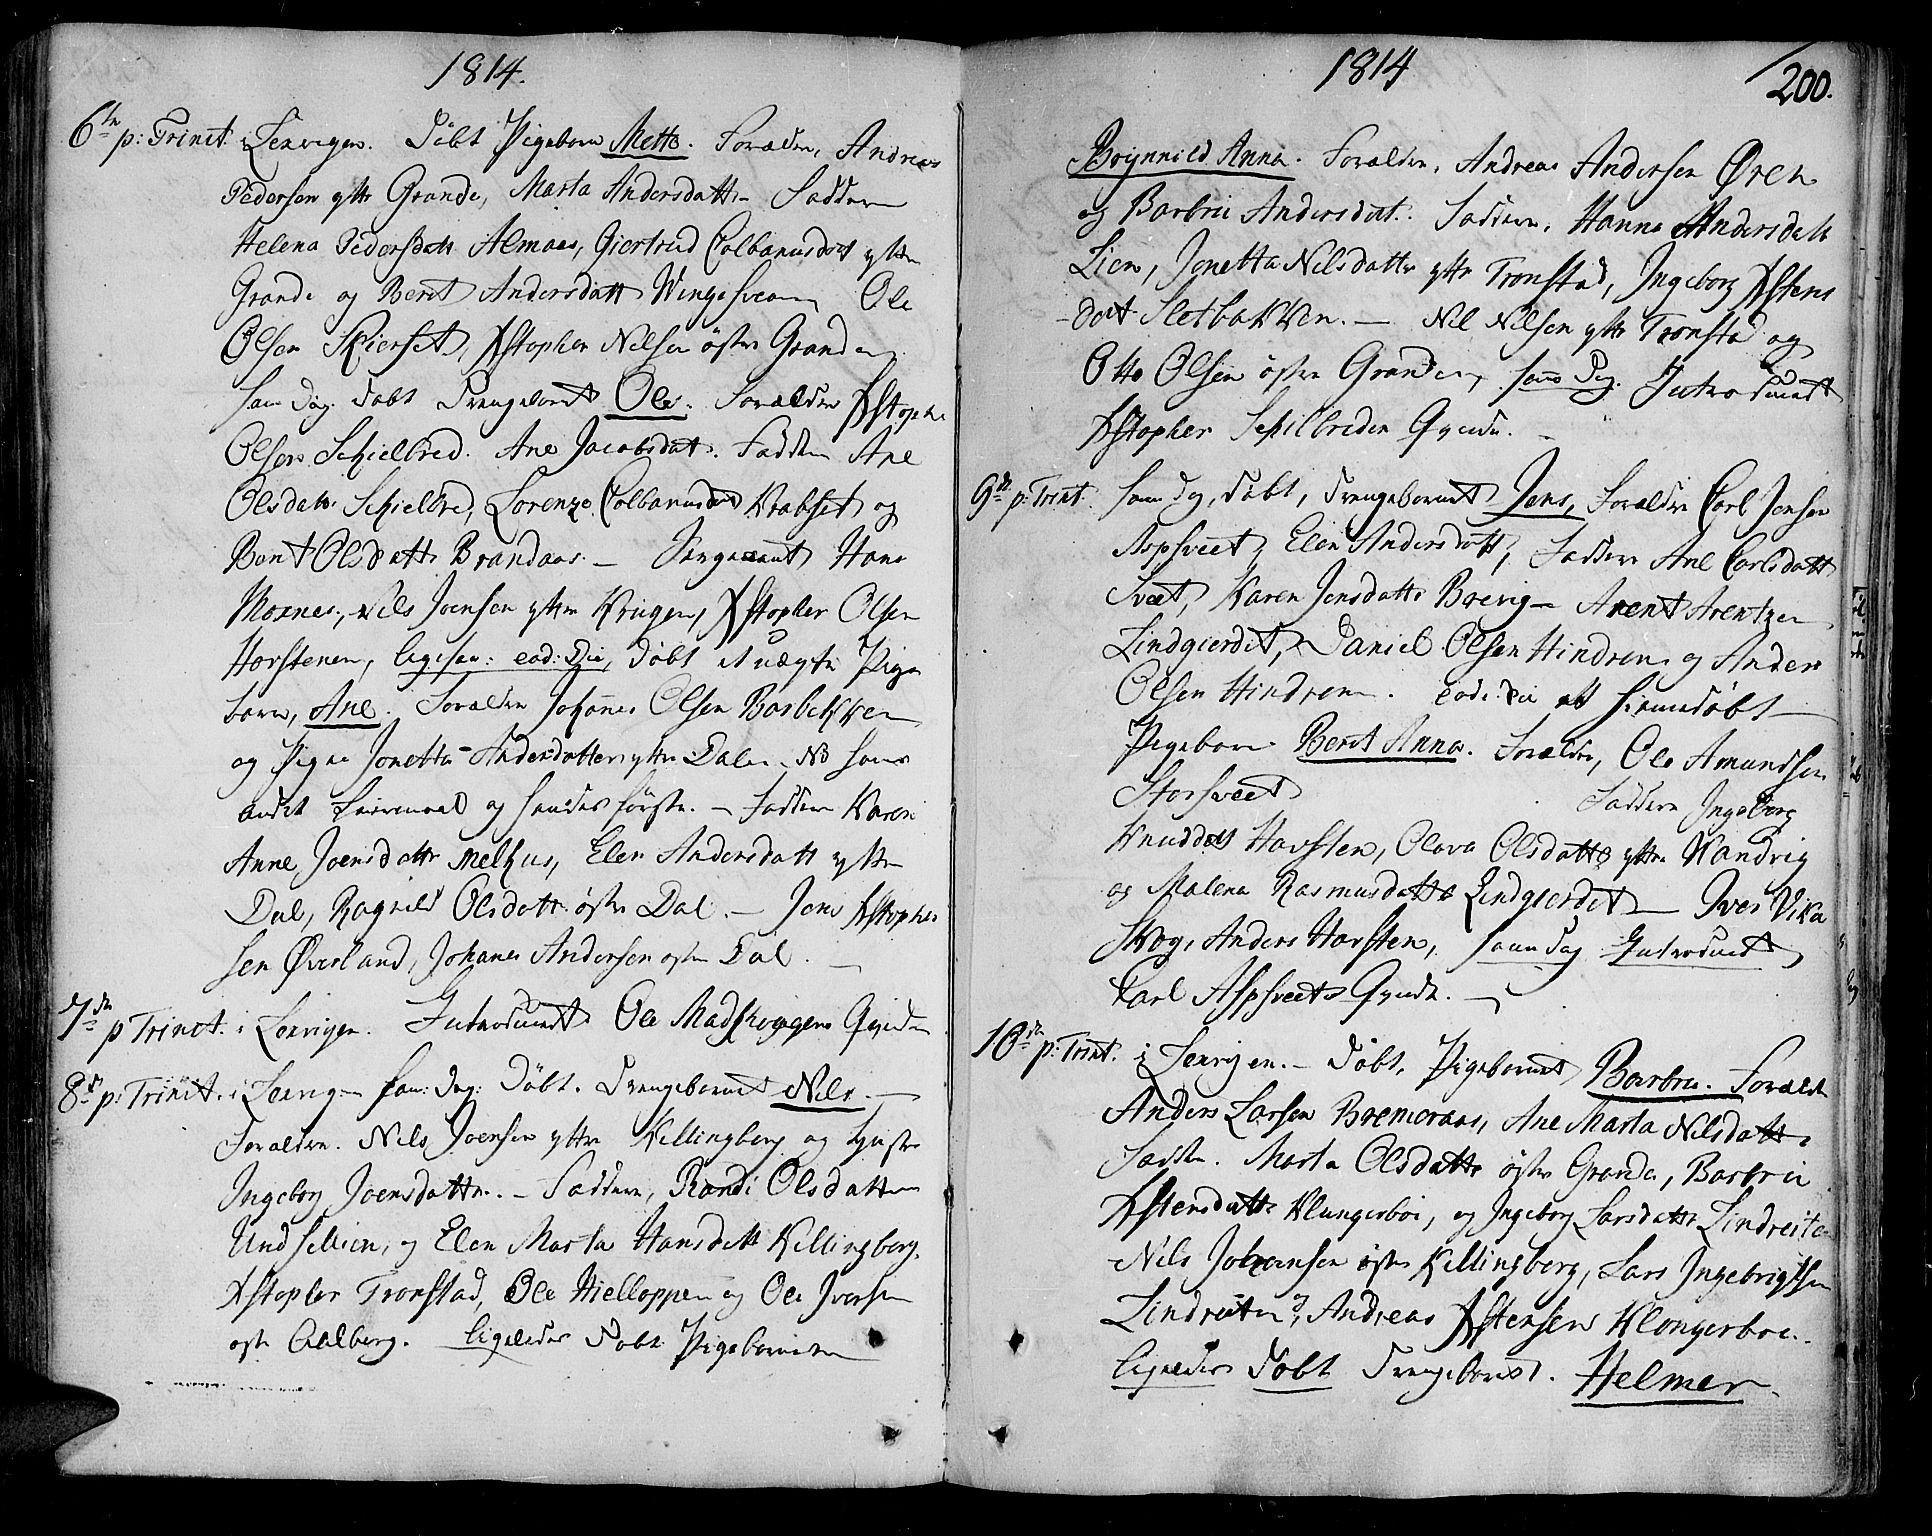 1814.
6te p: Trinit. i Lexvigen. Døbt Pigebarn Mette. Forældre, Andreas
Pedersen yttr Grande, Marta Andersdattr Faddere
Helena Pedersdattr Almaas, Giertrud Colbanusdat yttre
Grande og Berit Andersdatt Wingesveen, Ole
Olsen Skierset, Xstopher Nilsen østre Grande
sam Dag. døbt Drengebarnet Ole. Forældre Xstopher
Olsen Schielbred. Ane Jacobsdat. Faddere Ane
Olsdattr Schielbred, Lorenze Colbanusdat Krabset og
Berit Olsdattr Brandaas. — Sergeant Hans
Moxnes, Nils Joensen yttre Krugen, Xstopher Olsen
Horstenen, ligesaa: eod: Die, døbt et uægte Pige
barn, Ane. Forældre Johanes Olsen Barbekken
og Pigen Jonetta Andersdatter yttre Dalen NB hans
andet Leiermaal og hendes første. — Faddere Karen
Anne Joensdattr Melhus, Elen Andersdatt yttre
Dal, Ragnild Olsdattr østre Dal. — Jens Xstopher
sen Øverland, Johanes Andersen østre Dal. —
7de p Trinit. i Lexvigen. Introduceret Ole Madskoggens Qvinde
8de p: Trinit. i Lexvigen sam: dag: Døbt. Drengebarnet Nils. —
Forældre. Nils Joensen yttre Killingberg og Hustr
Ingeborg Joensdattr. - Faddere, Randi Olsdatter
Undseliien, og Elen Marta Hansdatt Killingberg.
Xstopher Tronstad, Ole Hielloppen og Ole Iversen
østre Aalberg. ligeledes Døbt Pigebarnet
1814
200.
Brynnild Anna. Forældre, Andreas Andersen Øren
og Barbru Andersdat. Faddere, Hanna Andersdatt
Lien, Jonetta Nilsdattr yttr Tronstad, Ingeborg Xstens
dat Sletbakken. — Nil Nilsen yttr Tronstad og
Otto Olsen østre Granden, sam Dag. Introduceret
Xstopher Schilbreden Qvinde. -
9de p: Trint. sam dag, døbt, Drengebarnet Jens, Forældre Carl Jensen
Aspsveet, Elen Andersdatt, Faddere Ane Carlsdatt
Sveet, Karen Jensdattr Brevig - Arent Arentzen
Lindgierdet, Daniel Olsen Hindrem og Anders
Olsen Hindrem. eode: die et hiemedøbt
Pigebarn Berit Anna. Forældre, Ole Amundsen
Storsveet Faddere Ingeborg
Knuddatt Havsten, Olava Olsdatter yttre Wandvig
og Malena Rasmusdattr Lindgierdet — Iver Vika
Skog, Anders Havsten, sam dag Introduceret
Carl Aspsveets Qvinde. —
10de p: Trint. i Lexvigen. - Døbt, Pigebarnet Barbru. Forældre
Anders Larsen Bremeraas, Ane Marta Nilsdattr
Faddre. Marta Olsdattr østre Grande, Barbru
Xstensdattr Klungerboe, og Ingeborg Larsdattr Lindreite
Nils Johansen østre Killingberg, Lars Ingebrigtsen
Lindreiten, Andreas Xstensen Klongerboe.
ligeledes døbt Drengebarnet. Helmer